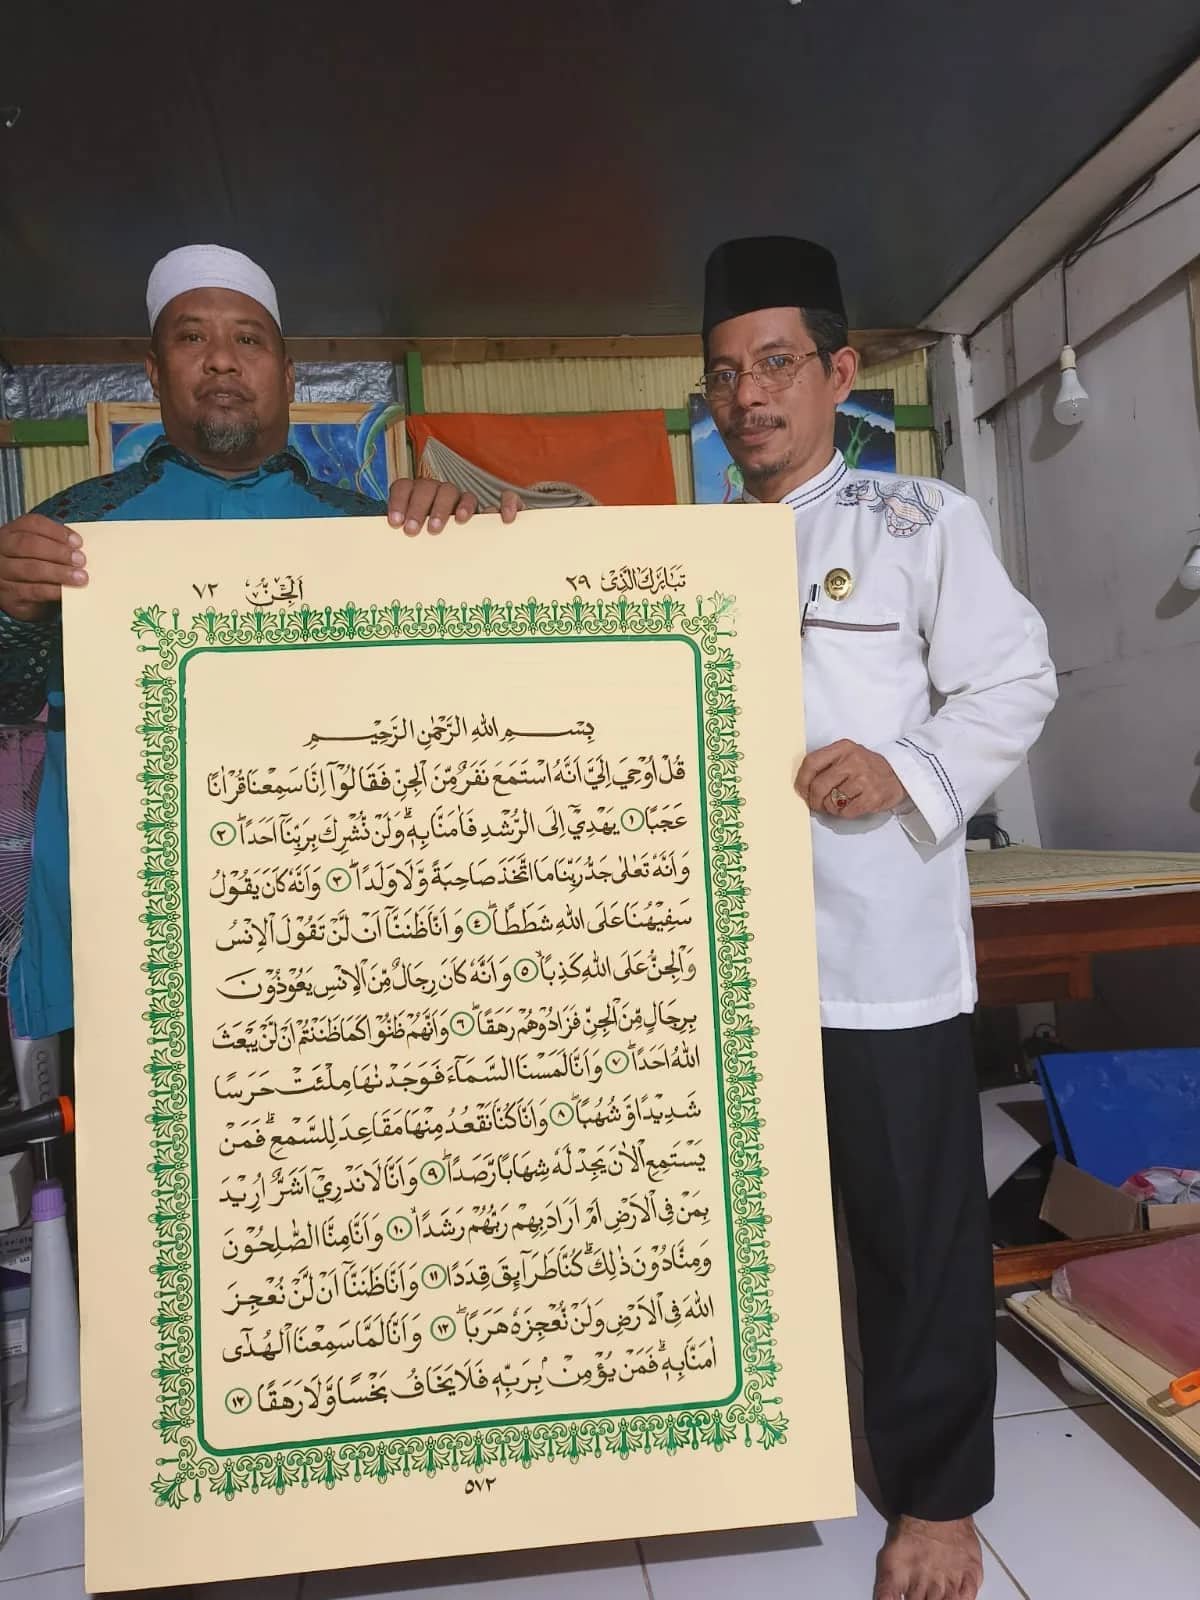 تَبَارَكَ الَّذِىْ ٢٩
اَلْجِنُّ ٧٢
بِسْمِ اللهِ الرَّحْمٰنِ الرَّحِيْمِ
قُلْ اُوْحِيَ اِلَيَّ اَنَّهُ اسْتَمَعَ نَفَرٌ مِّنَ الْجِنِّ فَقَالُوْٓا اِنَّا سَمِعْنَا قُرْاٰنًا
عَجَبًا ١ يَهْدِيْٓ اِلَى الرُّشْدِ فَاٰمَنَّا بِهٖۗ وَلَنْ نُّشْرِكَ بِرَبِّنَآ اَحَدًاۖ ٢
وَاَنَّهٗ تَعٰلٰى جَدُّ رَبِّنَا مَا اتَّخَذَ صَاحِبَةً وَّلَا وَلَدًاۖ ٣ وَاَنَّهٗ كَانَ يَقُوْلُ
سَفِيْهُنَا عَلَى اللهِ شَطَطًاۖ ٤ وَاَنَّا ظَنَنَّآ اَنْ لَّنْ تَقُوْلَ الْاِنْسُ
وَالْجِنُّ عَلَى اللهِ كَذِبًاۙ ٥ وَاَنَّهٗ كَانَ رِجَالٌ مِّنَ الْاِنْسِ يَعُوْذُوْنَ
بِرِجَالٍ مِّنَ الْجِنِّ فَزَادُوْهُمْ رَهَقًاۖ ٦ وَاَنَّهُمْ ظَنُّوْا كَمَا ظَنَنْتُمْ اَنْ لَّنْ يَّبْعَثَ
اللهُ اَحَدًاۖ ٧ وَاَنَّا لَمَسْنَا السَّمَآءَ فَوَجَدْنٰهَا مُلِئَتْ حَرَسًا
شَدِيْدًا وَّشُهُبًاۖ ٨ وَاَنَّا كُنَّا نَقْعُدُ مِنْهَا مَقَاعِدَ لِلسَّمْعِۗ فَمَنْ
يَّسْتَمِعِ الْاٰنَ يَجِدْ لَهٗ شِهَابًا رَّصَدًاۖ ٩ وَاَنَّا لَا نَدْرِيْٓ اَشَرٌّ اُرِيْدَ
بِمَنْ فِى الْاَرْضِ اَمْ اَرَادَ بِهِمْ رَبُّهُمْ رَشَدًاۙ ١٠ وَاَنَّا مِنَّا الصّٰلِحُوْنَ
وَمِنَّا دُوْنَ ذٰلِكَۗ كُنَّا طَرَآىِٕقَ قِدَدًاۙ ١١ وَاَنَّا ظَنَنَّآ اَنْ لَّنْ نُّعْجِزَ
اللهَ فِى الْاَرْضِ وَلَنْ نُّعْجِزَهٗ هَرَبًاۖ ١٢ وَاَنَّا لَمَّا سَمِعْنَا الْهُدٰٓى
اٰمَنَّا بِهٖۗ فَمَنْ يُّؤْمِنْۢ بِرَبِّهٖ فَلَا يَخَافُ بَخْسًا وَّلَا رَهَقًا ١٣
٥٧٢